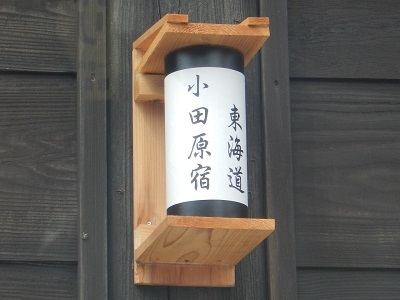 東海道
小田原宿